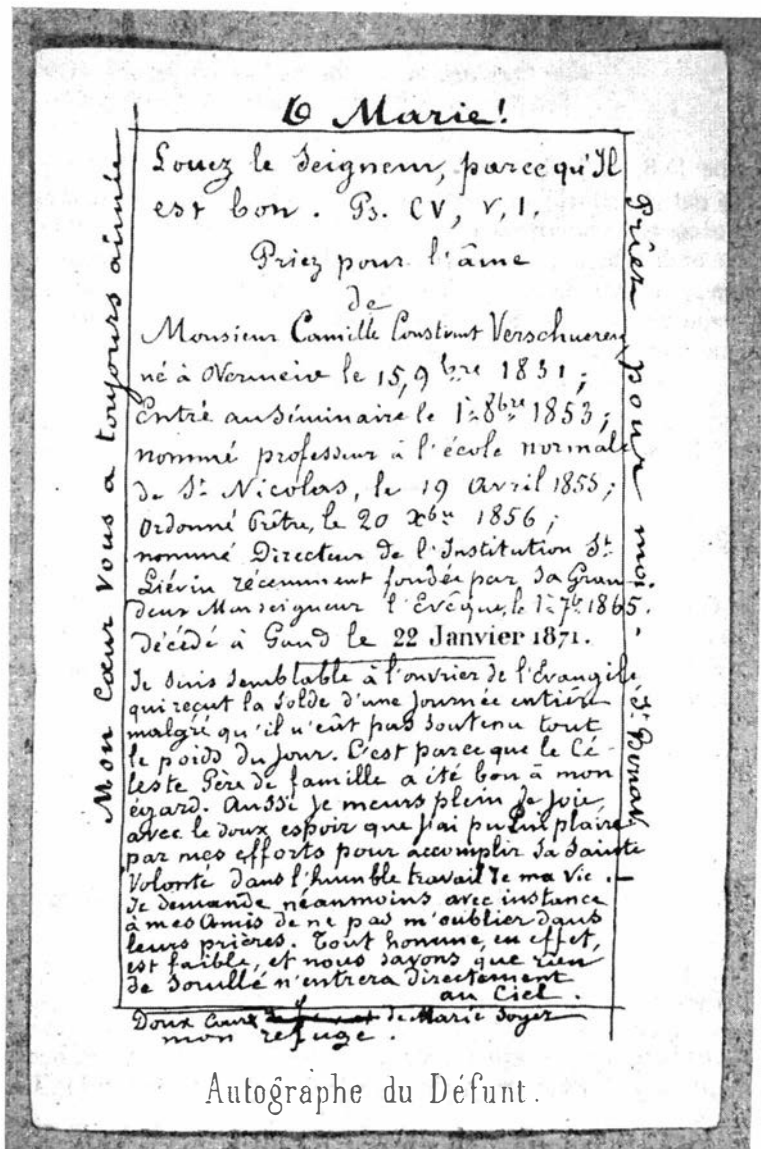 O Marie!
Mon Cœur vous a toujours aimée
Louez le Seigneur, parce qu'Il
est bon. Ps. CV, V, 1.
Priez pour l'âme
de
Monsieur Camille Constant Verschueren
né à Overmeire le 15, 9bre 1831;
Entré au Séminaire le 1r 8bre 1853;
nommé professeur à l'école normale
de St Nicolas, le 19 Avril 1855;
Ordonné Prêtre, le 20 xbre 1856;
nommé Directeur de l'Institution St
Liévin récemment fondée par Sa Gran-
deur Monseigneur l'Evêque, le 1r 7b 1865.
Décédé à Gand le 22 Janvier 1871.
Je suis semblable à l'ouvrier de l'Evangile,
qui reçut la solde d'une journée entière
malgré qu'il n'eût pas soutenu tout
le poids du jour. C'est parce que le Cé-
leste Père de famille a été bon à mon
égard. Aussi je meurs plein de joie,
avec le doux espoir que j'ai pu Lui plaire
par mes efforts pour accomplir Sa Sainte
Volonté dans l'humble travail de ma vie. —
Je demande néanmoins avec instance
à mes Amis de ne pas m'oublier dans
leurs prières. Tout homme, en effet,
est faible, et nous savons que rien
de souillé n'entrera directement
au Ciel.
Priez pour moi, St Bonav
Doux Cœur de Marie soyez
mon refuge.
Autographe du Défunt.